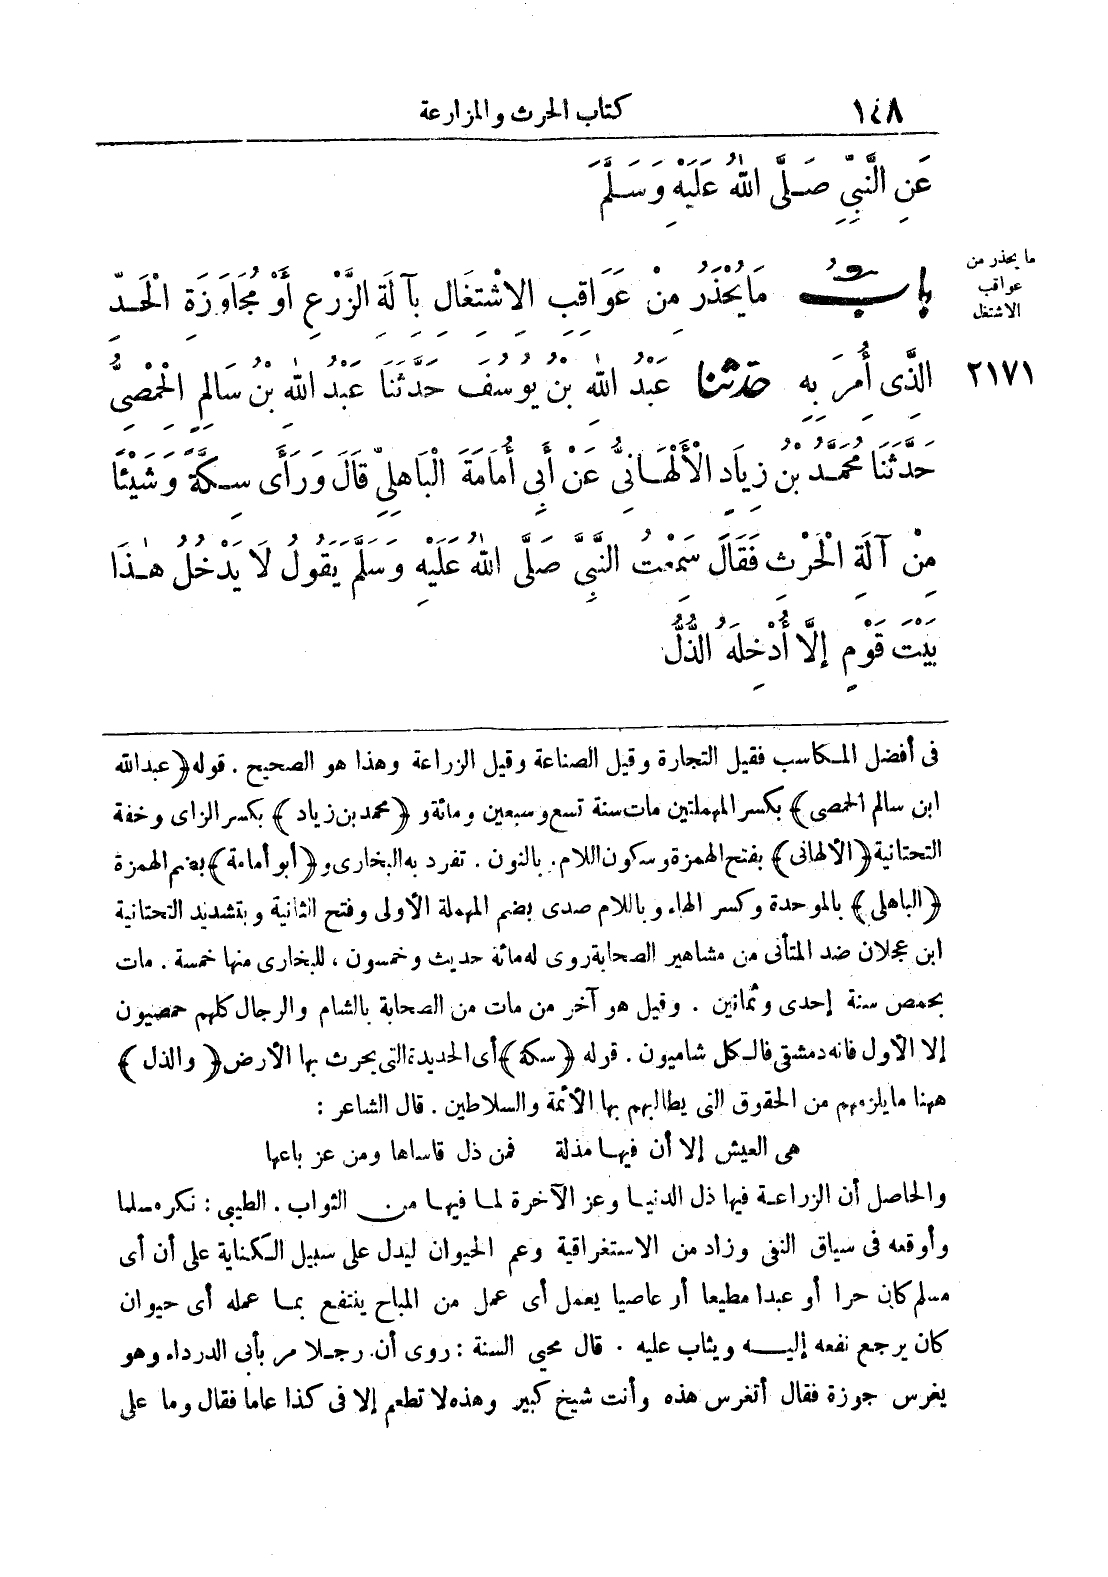 ١٤٨ كتاب الحرث والمزارعة
عَنِ النَّبِيِّ صَلَّى اللهُ عَلَيْهِ وَسَلَّمَ
ما يحذر من
عواقب
الاشتغل
بابُ مَا يُحْذَرُ مِنْ عَوَاقِبِ الِاشْتِغَالِ بِآلَةِ الزَّرْعِ أَوْ مُجَاوَزَةِ الْحَدِّ
٢١٧١ الَّذِى أُمِرَ بِهِ حدثنا عَبْدُ اللهِ بْنُ يُوسُفَ حَدَّثَنَا عَبْدُ اللهِ بْنُ سَالِمٍ الْحِمْصِىُّ
حَدَّثَنَا مُحَمَّدُ بْنُ زِيَادٍ الْأَلْهَانِىُّ عَنْ أَبِى أُمَامَةَ الْبَاهِلِىِّ قَالَ وَرَأَى سِكَّةً وَشَيْئًا
مِنْ آلَةِ الْحَرْثِ فَقَالَ سَمِعْتُ النَّبِىَّ صَلَّى اللهُ عَلَيْهِ وَسَلَّمَ يَقُولُ لَا يَدْخُلُ هٰذَا
بَيْتَ قَوْمٍ إِلَّا أُدْخِلَهُ الذُّلُّ
فى أفضل المكاسب فقيل التجارة وقيل الصناعة وقيل الزراعة وهذا هو الصحيح . قوله ﴿عبد الله
ابن سالم الحمصى﴾ بكسر المهملتين مات سنة تسع وسبعين ومائة و﴿محمد بن زياد﴾ بكسر الزاى وخفة
التحتانية ﴿الألهانى﴾ بفتح الهمزة وسكون اللام. بالنون . تفرد به البخارى و﴿أبو أمامة﴾ بضم الهمزة
﴿الباهلى﴾ بالموحدة وكسر الهاء وباللام صدى بضم المهملة الأولى وفتح الثانية وبتشديد التحتانية
ابن عجلان ضد المتأنى من مشاهير الصحابة روى له مائة حديث وخمسون ، للبخارى منها خمسة . مات
بحمص سنة إحدى وثمانين . وقيل هو آخر من مات من الصحابة بالشام والرجال كلهم حمصيون
إلا الأول فانه دمشقى فالكل شاميون . قوله ﴿سكة﴾ أى الحديدة التى يحرث بها الأرض ﴿والذل﴾
ههنا ما يلزمهم من الحقوق التى يطالبهم بها الأئمة والسلاطين . قال الشاعر :
هى العيش إلا أن فيها مذلة فمن ذل قاساها ومن عز باعها
والحاصل أن الزراعة فيها ذل الدنيا وعز الآخرة لما فيها من الثواب . الطيبى : نكره مسلما
وأوقعه فى سياق النفى وزاد من الاستغراقية وعم الحيوان ليدل على سبيل الكناية على أن أى
مسلم كان حرا أو عبدا مطيعا أو عاصيا يعمل أى عمل من المباح ينتفع بما عمله أى حيوان
كان يرجع نفعه إليه ويثاب عليه . قال محيى السنة : روى أن رجلا مر بأبى الدرداء وهو
يغرس جوزة فقال أتغرس هذه وأنت شيخ كبير وهذه لا تطعم إلا فى كذا عاما فقال وما على